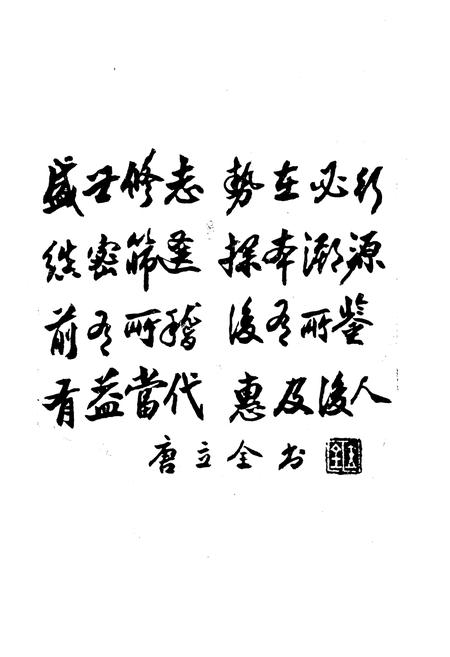 盛世修志 勢在必行
縝密篩選 探本溯源
前有所稽 後有所鑒
有益當代 惠及後人
唐立全书